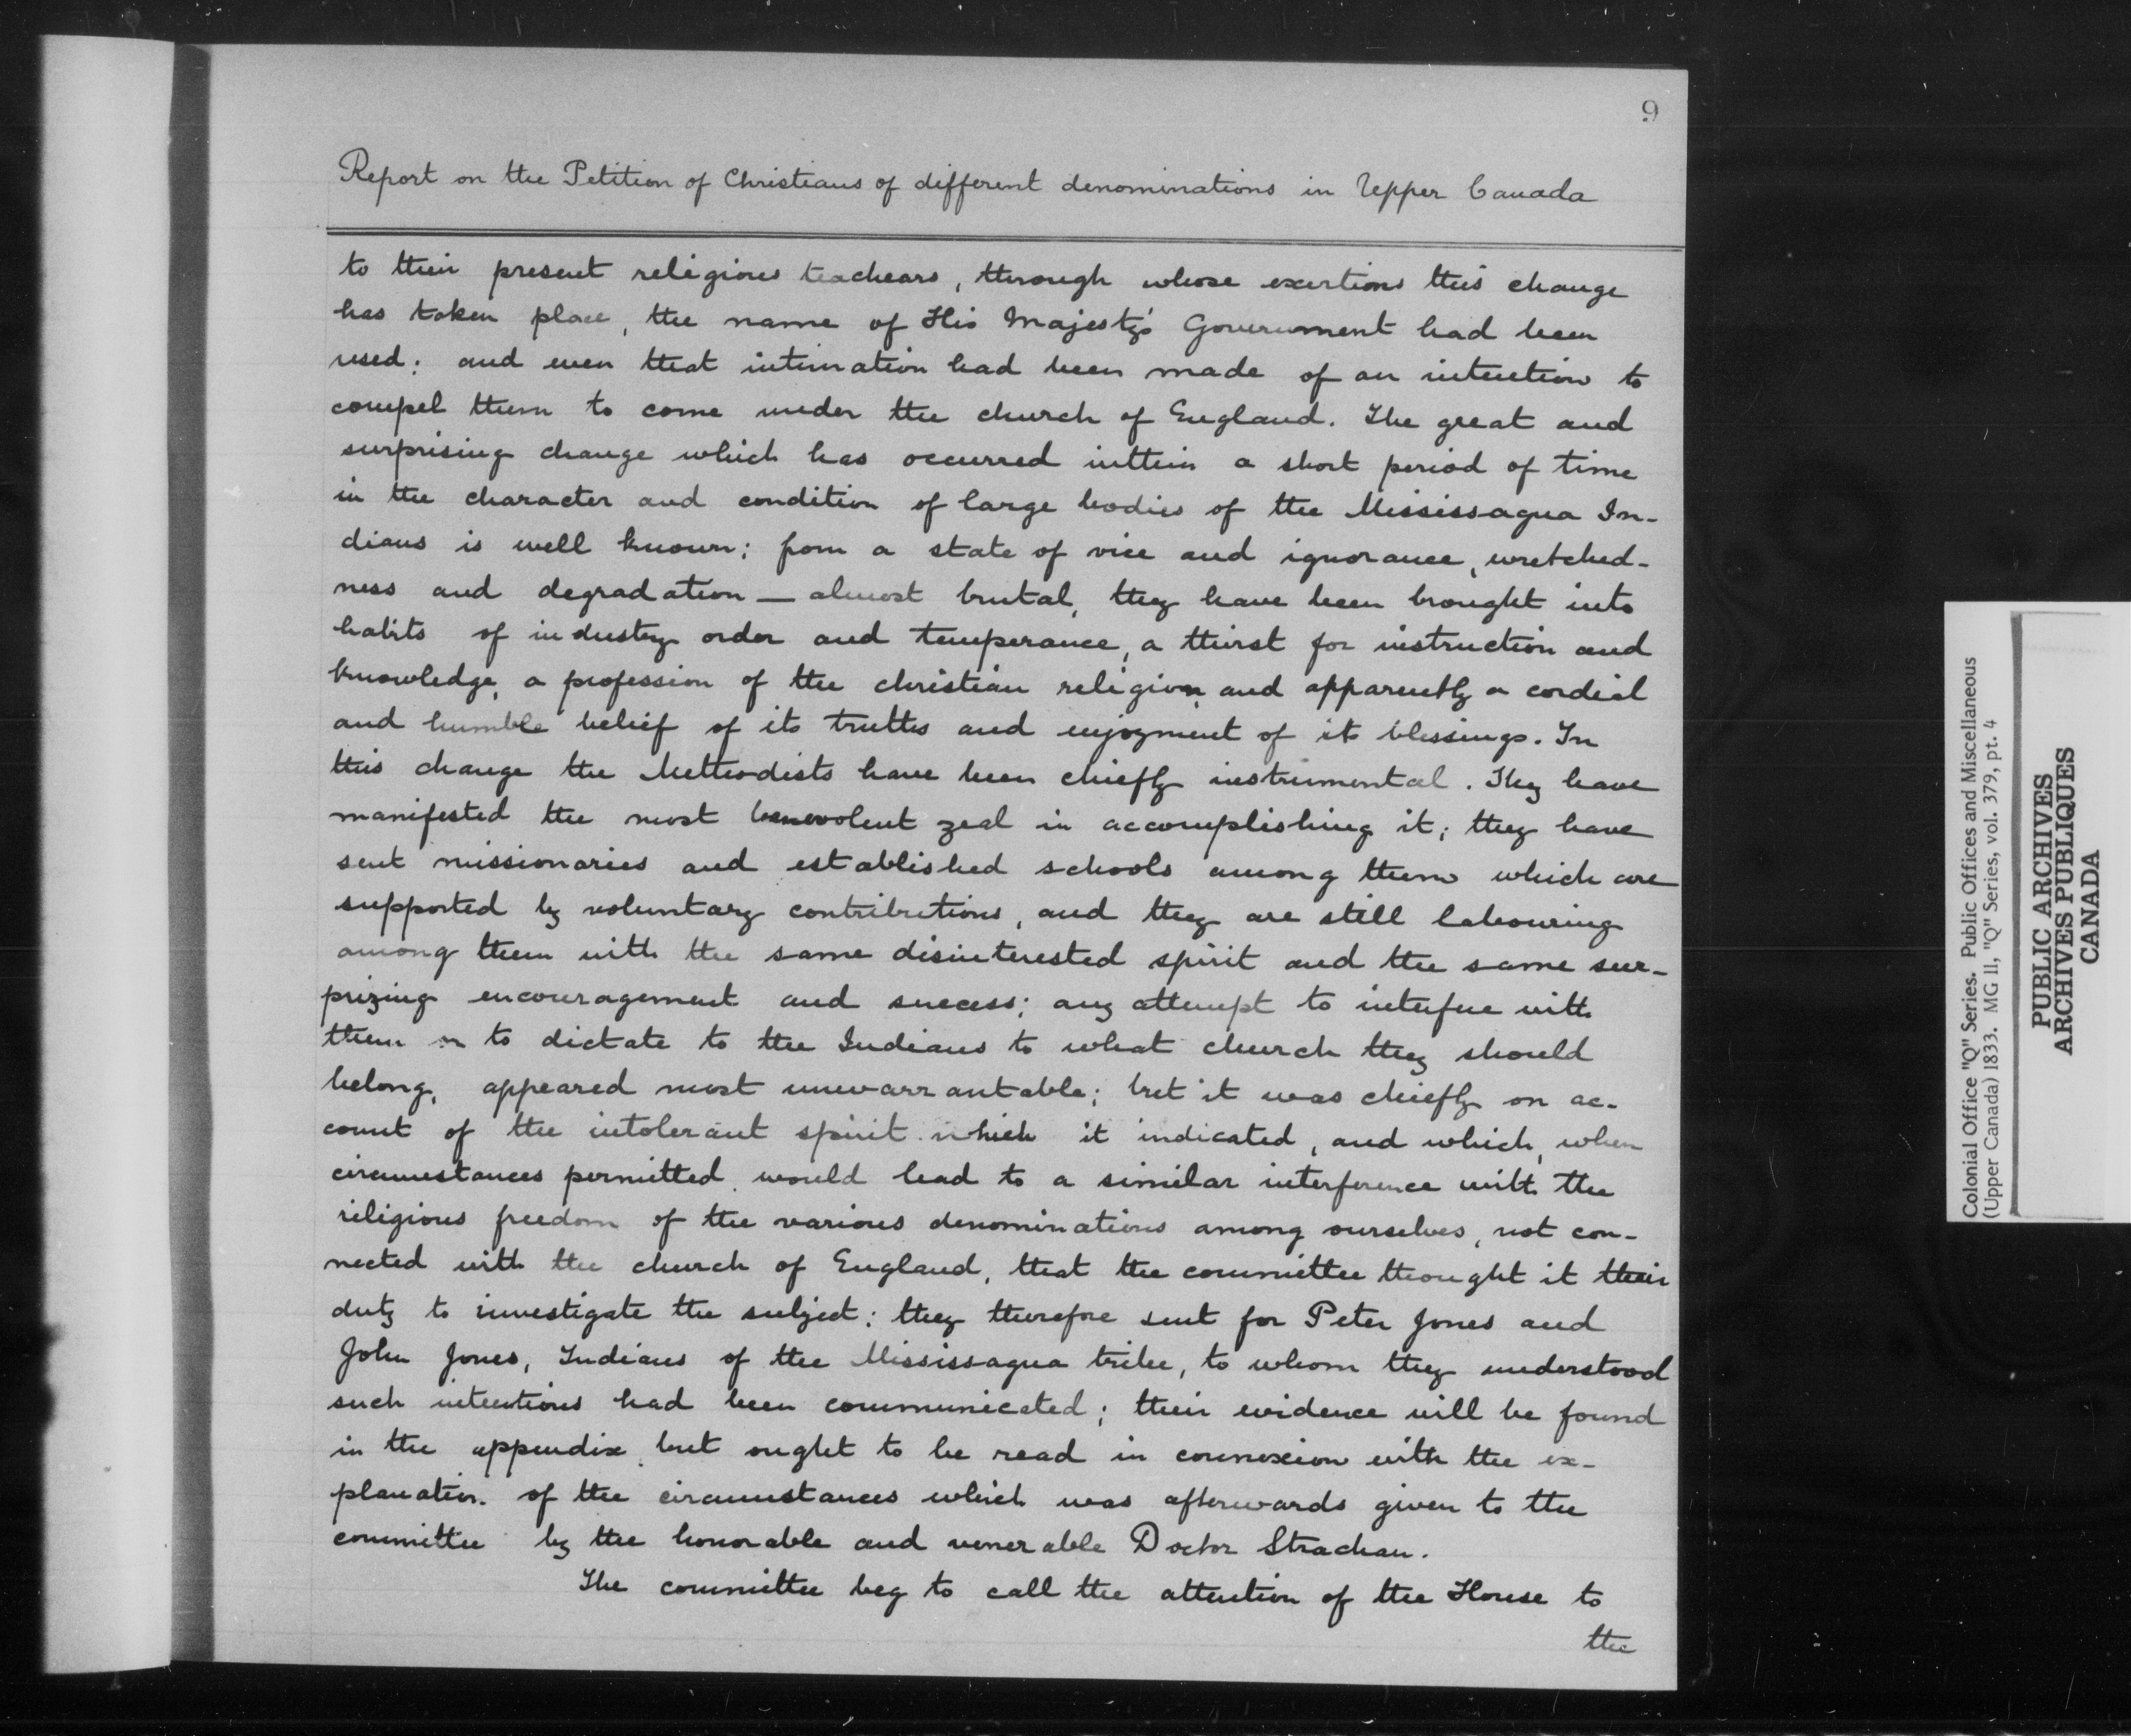 9
Report on the Petition of Christians of different denominations in Upper Canada
to their present religious teachears, through whose exertions this change
has taken place, the name of His Majesty's Government had been
used; and even that intimation had been made of an intention to
compel them to come under the church of England. The great and
surprising change which has occurred within a short period of time
in the character and condition of large bodies of the Mississagua In-
dians is well known; from a state of vice and ignorance, wretched-
ness and degradation — almost brutal, they have been brought into
habits of industry order and temperance, a thirst for instruction and
knowledge, a profession of the christian religion, and apparently a cordial
and humble belief of its truths and enjoyment of its blessings. In
this change the Methodists have been chiefly instrumental. They have
manifested the most benevolent zeal in accomplishing it; they have
sent missionaries and established schools among them which are
supported by voluntary contributions, and they are still labouring
among them with the same disinterested spirit and the same sur-
prizing encouragement and success; any attempt to interfere with
them or to dictate to the Indians to what church they should
belong, appeared most unwarrantable; but it was chiefly on ac-
count of the intolerant spirit which it indicated, and which, when
circumstances permitted, would lead to a similar interference with the
religious freedom of the various denominations among ourselves, not con-
nected with the church of England, that the committee thought it their
duty to investigate the subject: they therefore sent for Peter Jones and
John Jones, Indians of the Mississagua tribe, to whom they understood
such intentions had been communicated; their evidence will be found
in the appendix, but ought to be read in connexion with the ex-
planation of the circumstances which was afterwards given to the
committee by the honorable and venerable Doctor Strachan.
The committee beg to call the attention of the House to
the
Colonial Office "Q" Series. Public Offices and Miscellaneous
(Upper Canada) 1833. MG 11, "Q" Series, vol. 379, pt. 4
PUBLIC ARCHIVES
ARCHIVES PUBLIQUES
CANADA